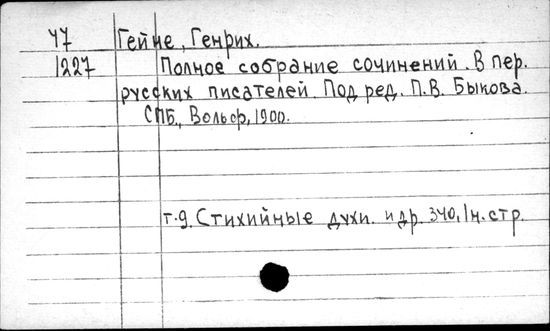 У7 Гейне, Генрих.
1227 Полное собрание сочинений. В пер.
русских писателей. Под ред. П.В. Быкова.
СПБ., Вольф, 1900.
т.9. Стихийные духи. и др. 340, 1н. стр.